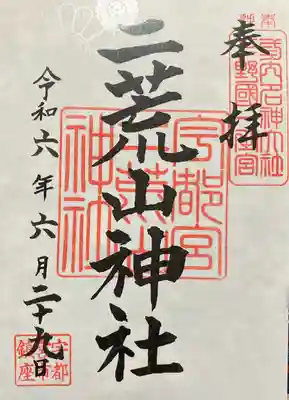 奉拝
二荒山神社
令和六年六月二十九日
宇都宮
二荒山
神社
宇都
宮市
鎮座